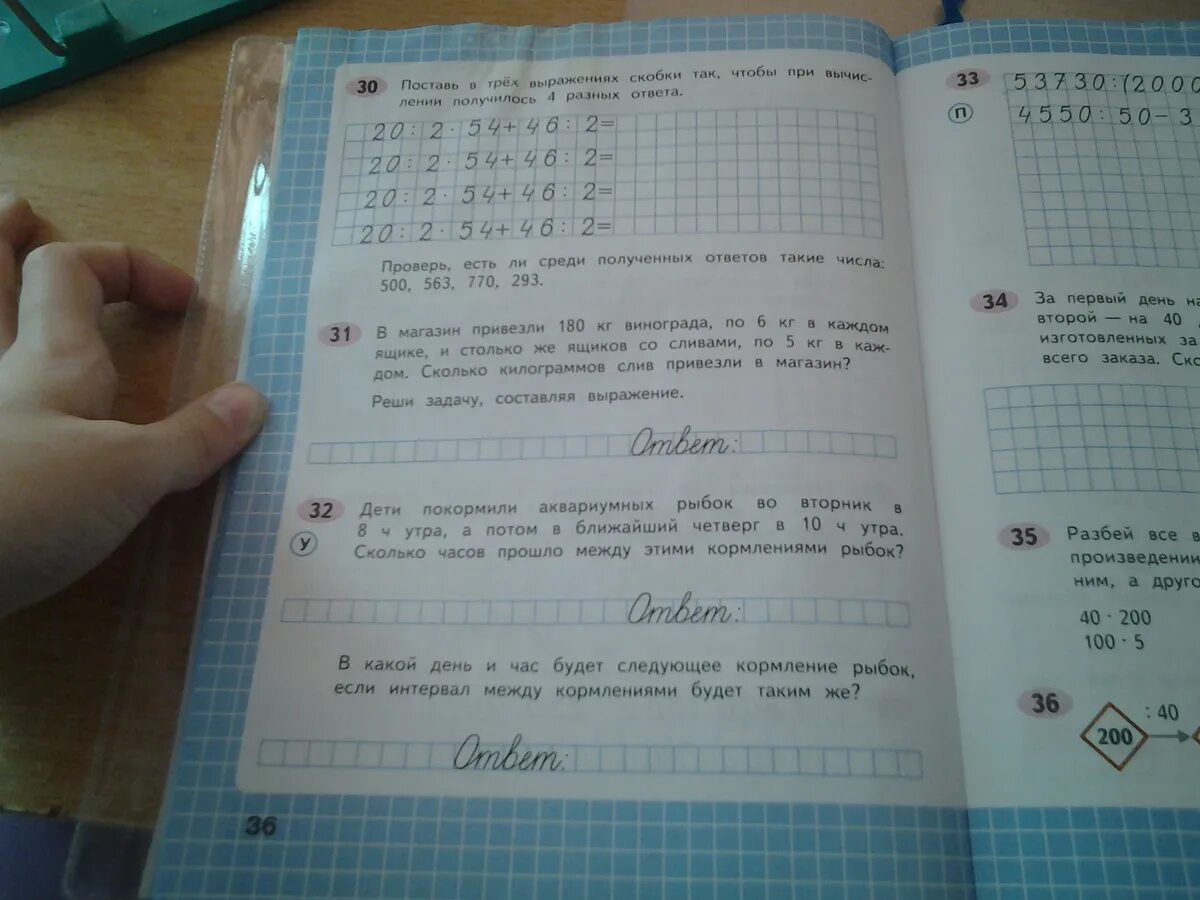 30 Поставь в трёх выражениях скобки так, чтобы при вычис-
лении получилось 4 разных ответа.
20 : 2 · 54 + 46 : 2 =
20 : 2 · 54 + 46 : 2 =
20 : 2 · 54 + 46 : 2 =
20 : 2 · 54 + 46 : 2 =
Проверь, есть ли среди полученных ответов такие числа:
500, 563, 770, 293.
31 В магазин привезли 180 кг винограда, по 6 кг в каждом
ящике, и столько же ящиков со сливами, по 5 кг в каж-
дом. Сколько килограммов слив привезли в магазин?
Реши задачу, составляя выражение.
Ответ:
32 Дети покормили аквариумных рыбок во вторник в
У 8 ч утра, а потом в ближайший четверг в 10 ч утра.
Сколько часов прошло между этими кормлениями рыбок?
Ответ:
В какой день и час будет следующее кормление рыбок,
если интервал между кормлениями будет таким же?
Ответ:
36
33 53730 : (2000
П 4550 : 50 – 3
34 За первый день на
второй — на 40
изготовленных за
всего заказа. Ско
35 Разбей все в
произведени
ним, а друго
40 · 200
100 · 5
36 200 : 40